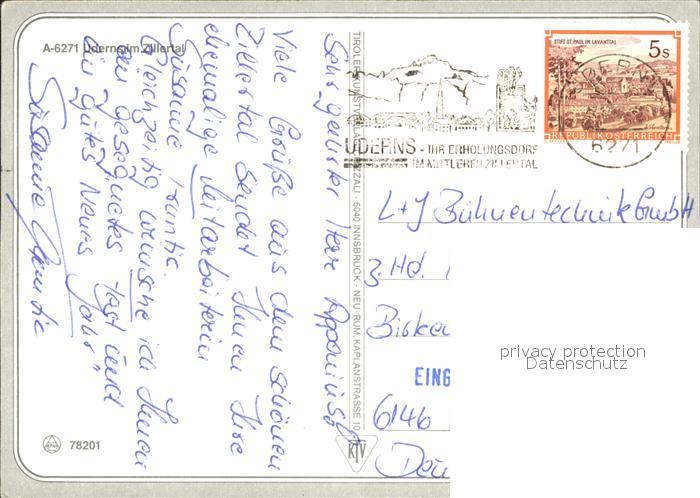 A-6271 Uderns im Zillertal
Sehr geehrter Herr
Viele Grüße aus dem schönen
Zillertal sendet Ihnen Ihre
ehemalige Mitarbeiterin
Susanne
Gleichzeitig wünsche ich Ihnen
ein gesegnetes Fest und
ein gutes Neues Jahr"
Susanne
78201
TIROLER KUNSTVERLAG 6040 INNSBRUCK - NEU-RUM, KAPLANSTRASSE 10
KTV
UDERNS - IHR ERHOLUNGSDORF
IM MITTLEREN ZILLERTAL
STIFT ST. PAUL IM LAVANTTAL
5 S
REPUBLIK ÖSTERREICH
6271
L+J Bühnentechnik GmbH
z.Hd.
EING
6146
privacy protection
Datenschutz